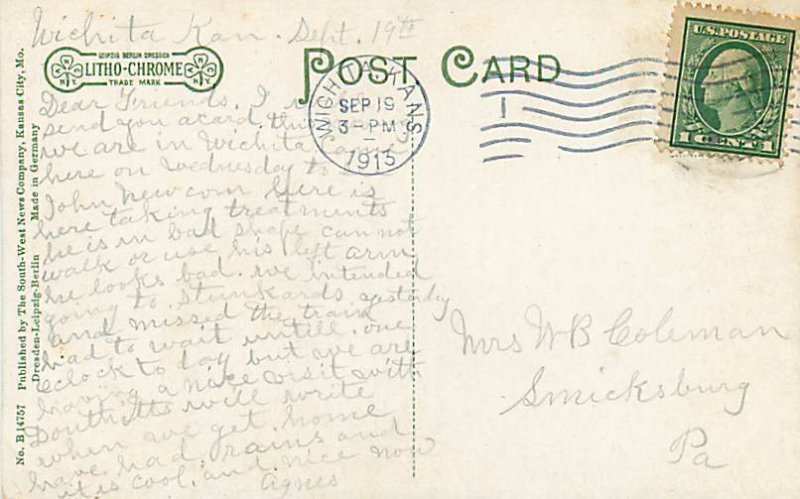 Wichita Kan. Sept. 19th
LEIPZIG BERLIN DRESDEN
LITHO-CHROME
TRADE MARK
POST CARD
WICHITA, KANS
SEP 19
3-PM
1915
1
U.S. POSTAGE
1 CENT 1
Dear Friends, I will
send you a card this
we are in Wichita came
here on Wednesday to
John Newcom here is
here taking treatments
he is in bad shape cannot
walk or use his left arm
he looks bad. we intended
going to Stunkards yesterday
and missed the train
had to wait untill one
oclock to day but we are
having a nice visit with
Douthetts will write
when we get home
have had rains and
it is cool and nice now
Agnes
Mrs W B Coleman
Smicksburg
Pa
No. B 14757 Published by The South-West News Company, Kansas City, Mo.
Dresden-Leipzig-Berlin Made in Germany